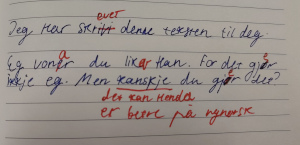 ever
Jeg har skrift denne teksten til deg
a
Eg voner du likar han. For det gjer
ikkje eg. Men kanskje du gjer det?
det kan henda
er betre på nynorsk